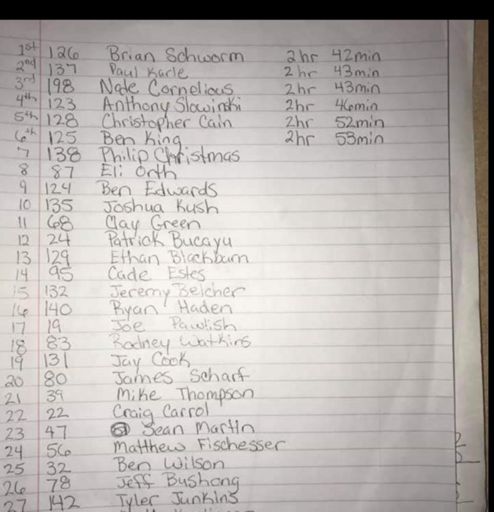 1st 126 Brian Schworm 2hr 42min
2nd 137 Paul Karle 2hr 43min
3rd 198 Nate Cornelious 2hr 43min
4th 123 Anthony Slowinski 2hr 46min
5th 128 Christopher Cain 2hr 52min
6th 125 Ben King 2hr 53min
7 138 Philip Christmas
8 87 Eli Orth
9 124 Ben Edwards
10 135 Joshua Kush
11 68 Clay Green
12 24 Patrick Bucayu
13 129 Ethan Blackburn
14 95 Cade Estes
15 132 Jeremy Belcher
16 140 Ryan Haden
17 19 Joe Pawlish
18 83 Rodney Watkins
19 131 Jay Cook
20 80 James Scharf
21 39 Mike Thompson
22 22 Craig Carrol
23 47 Sean Martin
24 56 Matthew Fischesser
25 32 Ben Wilson
26 78 Jeff Bushong
27 142 Tyler Junkins